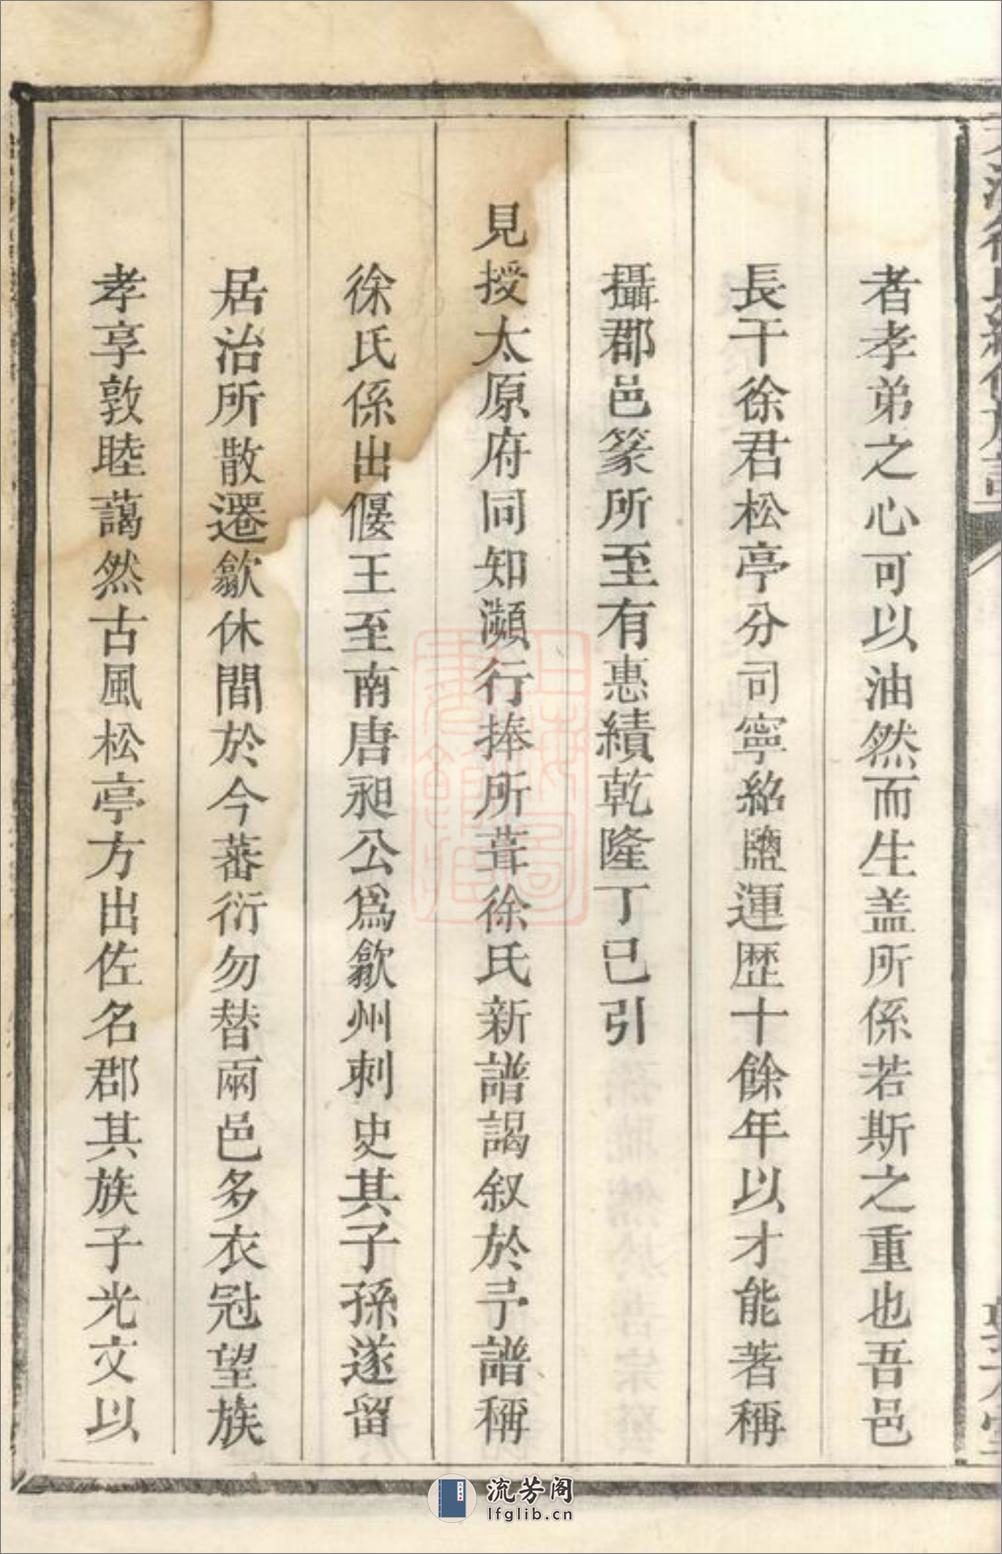 者孝弟之心可以油然而生盖所係若斯之重也吾邑
長干徐君松亭分司寧紹鹽運歷十餘年以才能著稱
攝郡邑篆所至有惠績乾隆丁巳引
見授太原府同知瀕行捧所葺徐氏新譜謁叙於予譜稱
徐氏係出偃王至南唐昶公爲歙州刺史其子孫遂留
居治所散遷歙休間於今蕃衍勿替兩邑多衣冠望族
孝享敦睦藹然古風松亭方出佐名郡其族子光文以
流芳阁
lfglib.cn